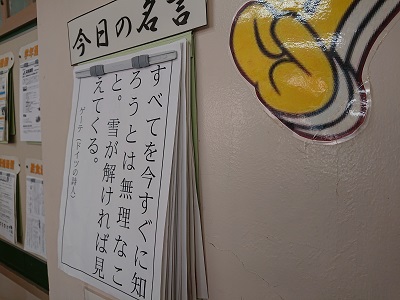 今日の名言
すべてを今すぐに知
ろうとは無理なこ
と。雪が解ければ見
えてくる。
ゲーテ（ドイツの詩人）